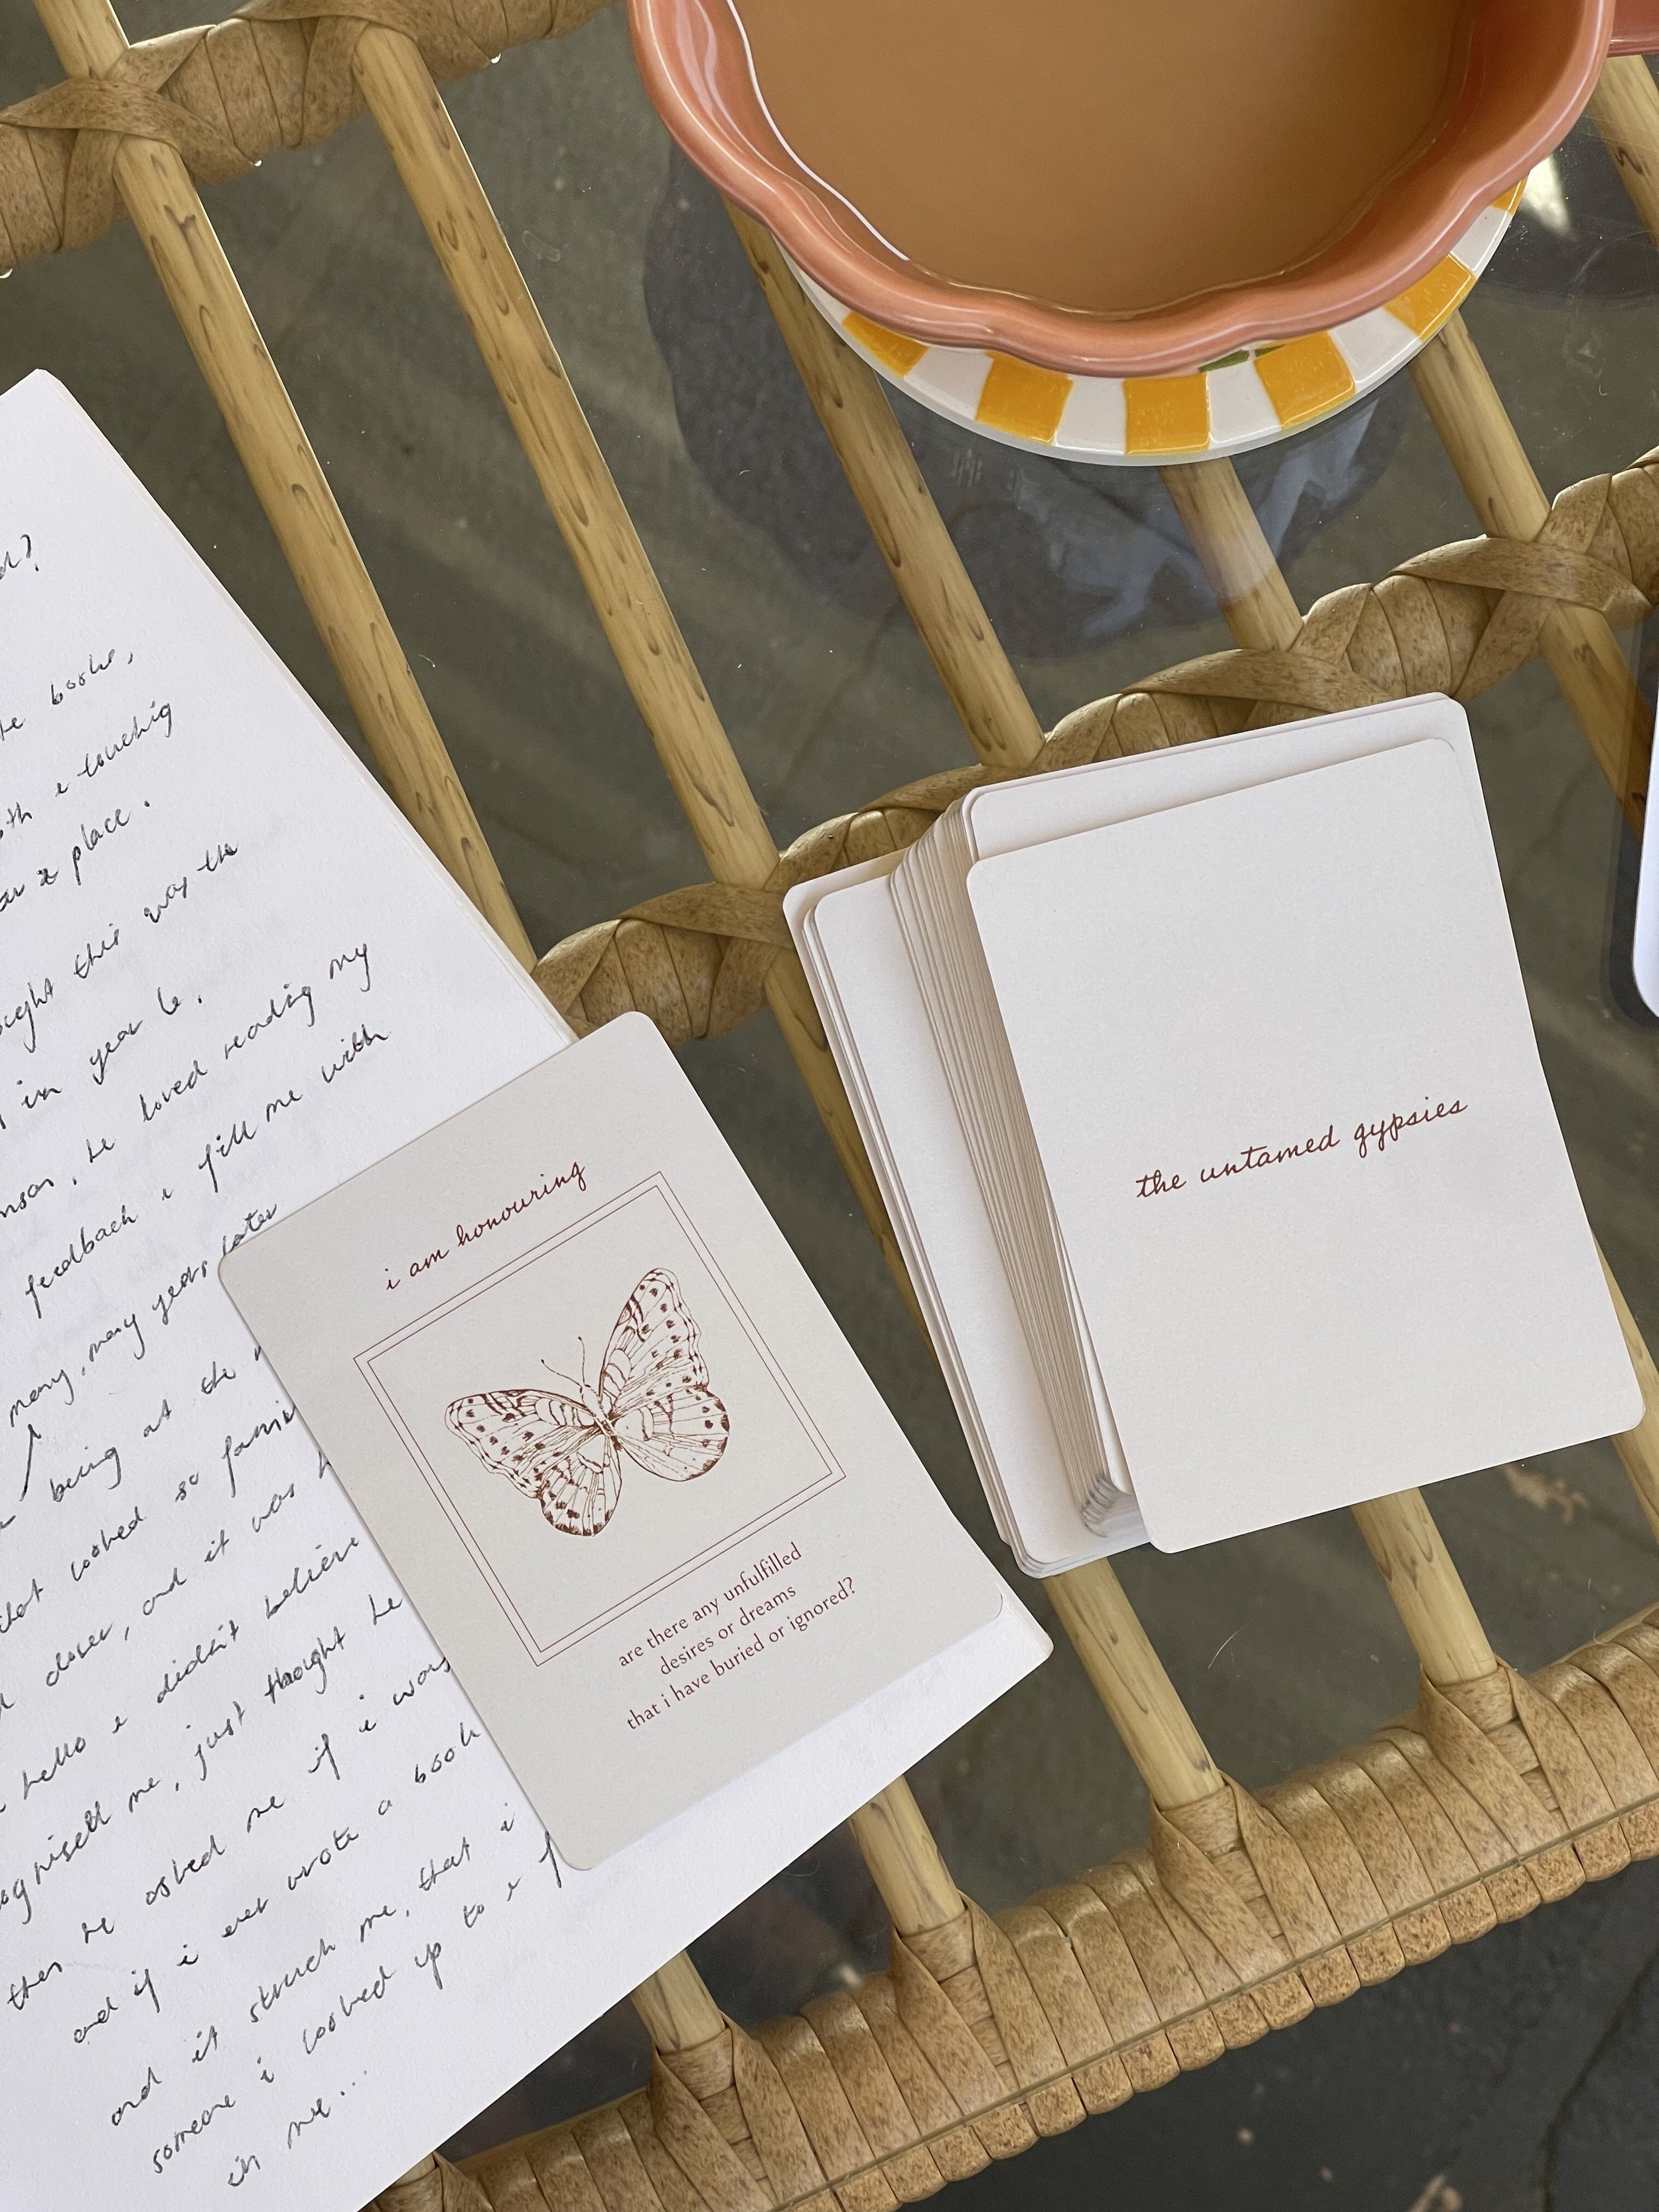 books,
e touching
place.
thought this was the
in year 6.
he loved reading my
feedback i fill me with
many, many years later
being at the
that looked so famil
closer, and it was h
hello e didn't believe
me, just thought he
then he asked me if i was
and if i ever wrote a book
and it struck me, that i
someone i looked up to e f
in me...
i am honouring
are there any unfulfilled
desires or dreams
that i have buried or ignored?
the untamed gypsies